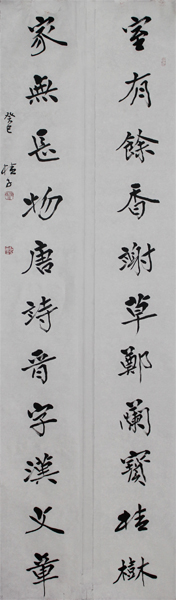 室有餘香謝草鄭蘭竇桂樹
家無長物唐詩晉字漢文章
癸巳